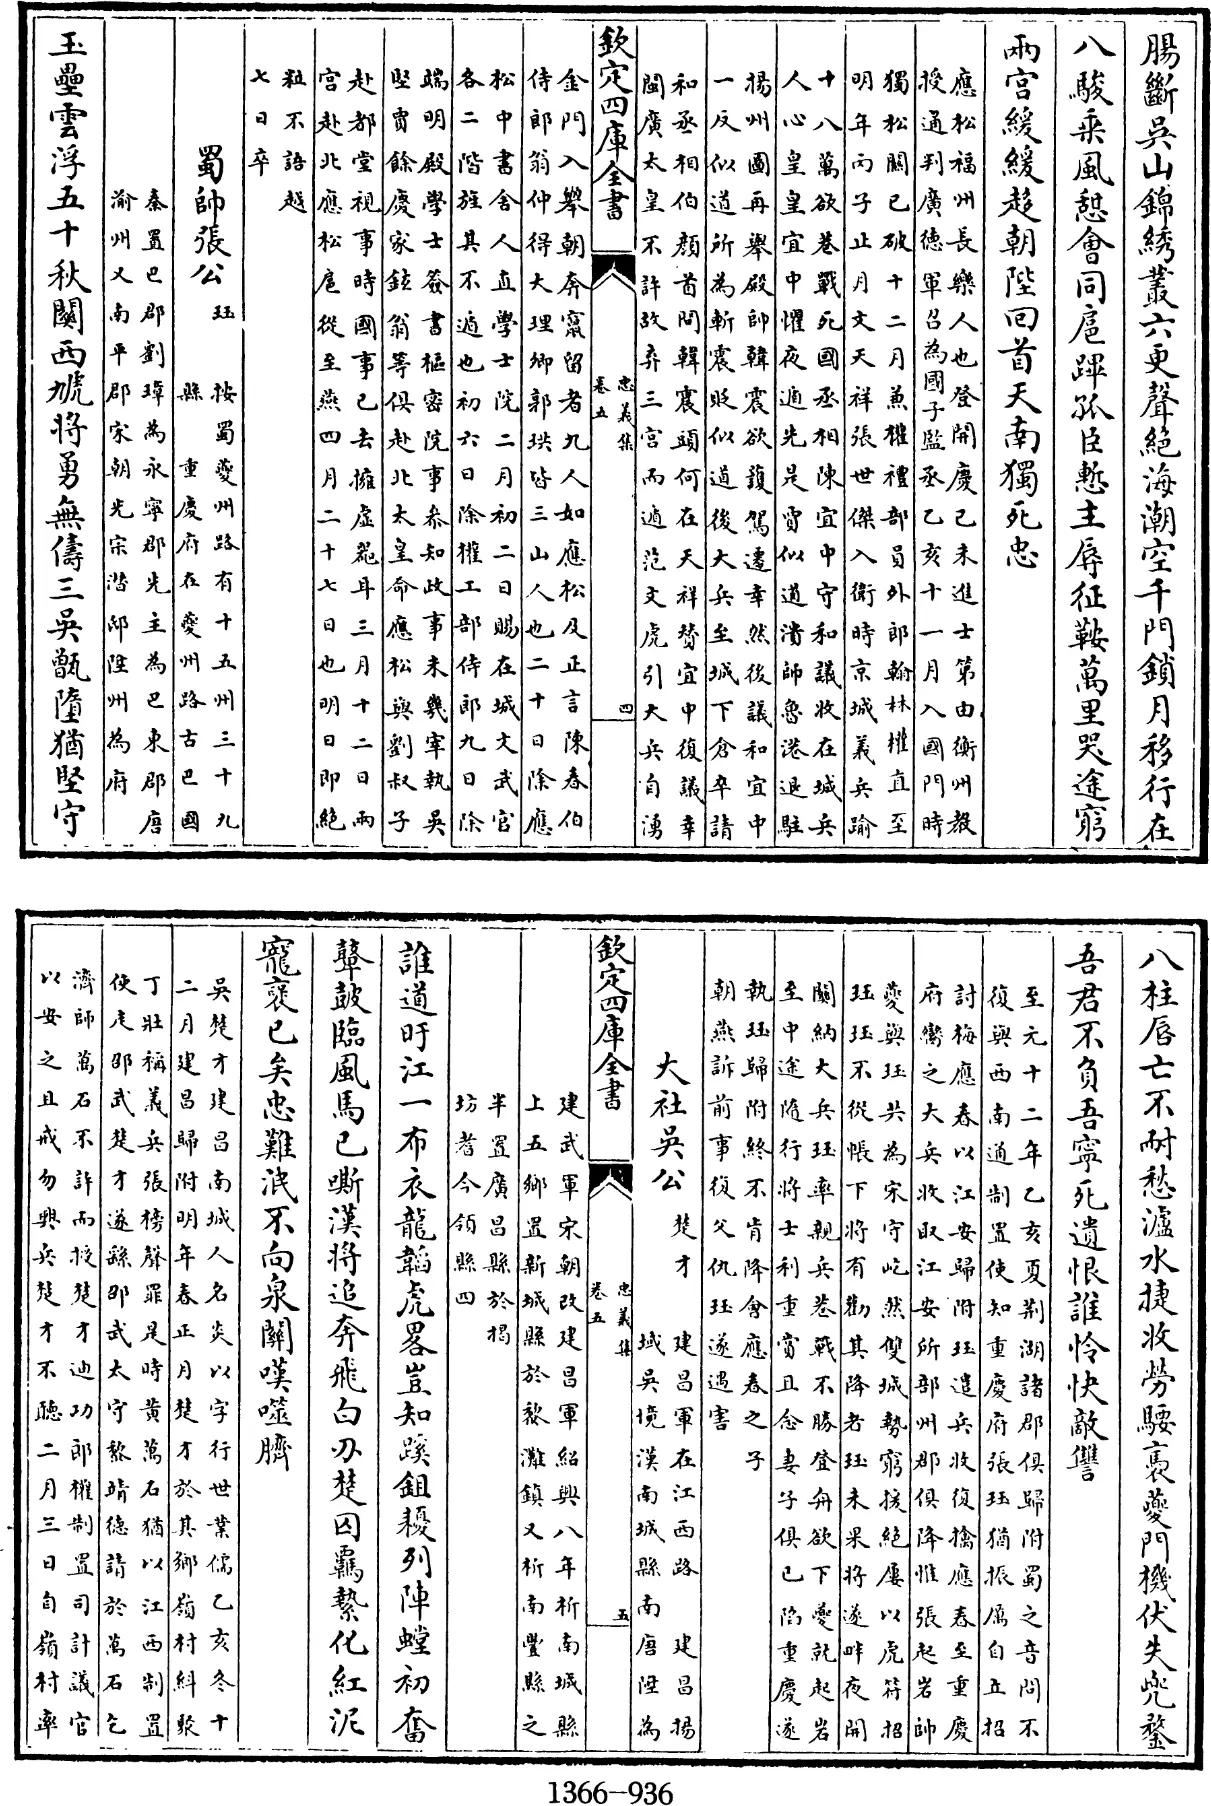 腸斷吳山錦綉叢六更聲絶海潮空千門鎖月移行在
八駿乗風愬會同扈蹕孤臣慙主辱征鞍萬里哭途窮
兩宫緩緩趍朝陛囘首天南獨死忠
應松福州長樂人也登開慶己未進士第由衡州教
授通判廣德軍召為國子監丞乙亥十一月入國門時
獨松關已破十二月兼權禮部員外郎翰林權直至
明年丙子止月文天祥張世傑入衛時京城義兵踰
十八萬欲巷戰死國丞相陳宜中守和議收在城兵
人心皇皇宜中懼夜遁先是賈似道潰師魯港退駐
揚州圖再舉殿帥韓震欲䕶駕遷幸然後議和宜中
一反似道所為斬震貶似道後大兵至城下倉卒請
和丞相伯顔首問韓震頭何在天祥賛宜中復議幸
閩廣太皇不許故弃三宫而遁范文虎引大兵自湧
欽定四庫全書
忠義集
卷五
四
金門入舉朝奔竄留者九人如應松及正言陳春伯
侍郎翁仲得大理卿郭珙皆三山人也二十日除應
松中書舍人直學士院二月初二日賜在城文武官
各二階旌其不遁也初六日除權工部侍郎九日除
端明殿學士簽書樞密院事叅知政事未幾宰執吳
堅賈餘慶家鉉翁等俱赴北太皇命應松與劉叔子
赴都堂視事時國事已去擁虚器耳三月十二日兩
宫赴北應松扈從至燕四月二十七日也明日即絶
粒不語越
七日卒
蜀帥張公
珏
按蜀夔州路有十五州三十九
縣 重慶府在夔州路古巴國
秦置巴郡劉璋為永寧郡先主為巴東郡唐
渝州又南平郡宋朝光宗潛邸陞州為府
玉壘雲浮五十秋關西虓將勇無儔三吳甑墮猶堅守
八柱唇亡不耐愁瀘水捷收勞騕褭夔門機伏失兜鍪
吾君不負吾寧死遺恨誰憐快敵讐
至元十二年乙亥夏荆湖諸郡俱歸附蜀之音問不
復與西南通制置使知重慶府張珏猶振厲自立招
討梅應春以江安歸附珏遣兵收復擒應春至重慶
府臠之大兵收取江安所部州郡俱降惟張起岩帥
夔與珏共為宋守屹然雙城勢窮援絶屢以虎符招
珏珏不從帳下將有勸其降者珏未果將遂畔夜開
關納大兵珏率親兵巷戰不勝登舟欲下夔就起岩
至中途隨行將士利重賞且念妻子俱已陷重慶遂
執珏歸附終不肯降會應春之子
朝燕訴前事復父仇珏遂遇害
大社吳公
楚才
建昌軍在江西路 建昌揚
域吳境漢南城縣南唐陞為
欽定四庫全書
忠義集
卷五
五
建武軍宋朝改建昌軍紹興八年析南城縣
上五鄉置新城縣於黎灘鎮又析南豐縣之
半置廣昌縣於揭
坊耆今領縣四
誰道旴江一布衣龍韜虎畧豈知蹊鉏耰列陣螳初奮
鼙鼓臨風馬已嘶漢將追奔飛白刃楚囚羈縶化紅泥
寵褒已矣忠難泯不向泉關嘆噬臍
吳楚才建昌南城人名炎以字行世業儒乙亥冬十
二月建昌歸附明年春正月楚才於其鄉嶺村糾聚
丁壯稱義兵張榜聲罪是時黄萬石猶以江西制置
使㞐邵武楚才遂繇邵武太守黎靖德請於萬石乞
濟師萬石不許而授楚才迪功郎權制置司計議官
以安之且戒勿興兵楚才不聽二月三日自嶺村率
1366—936